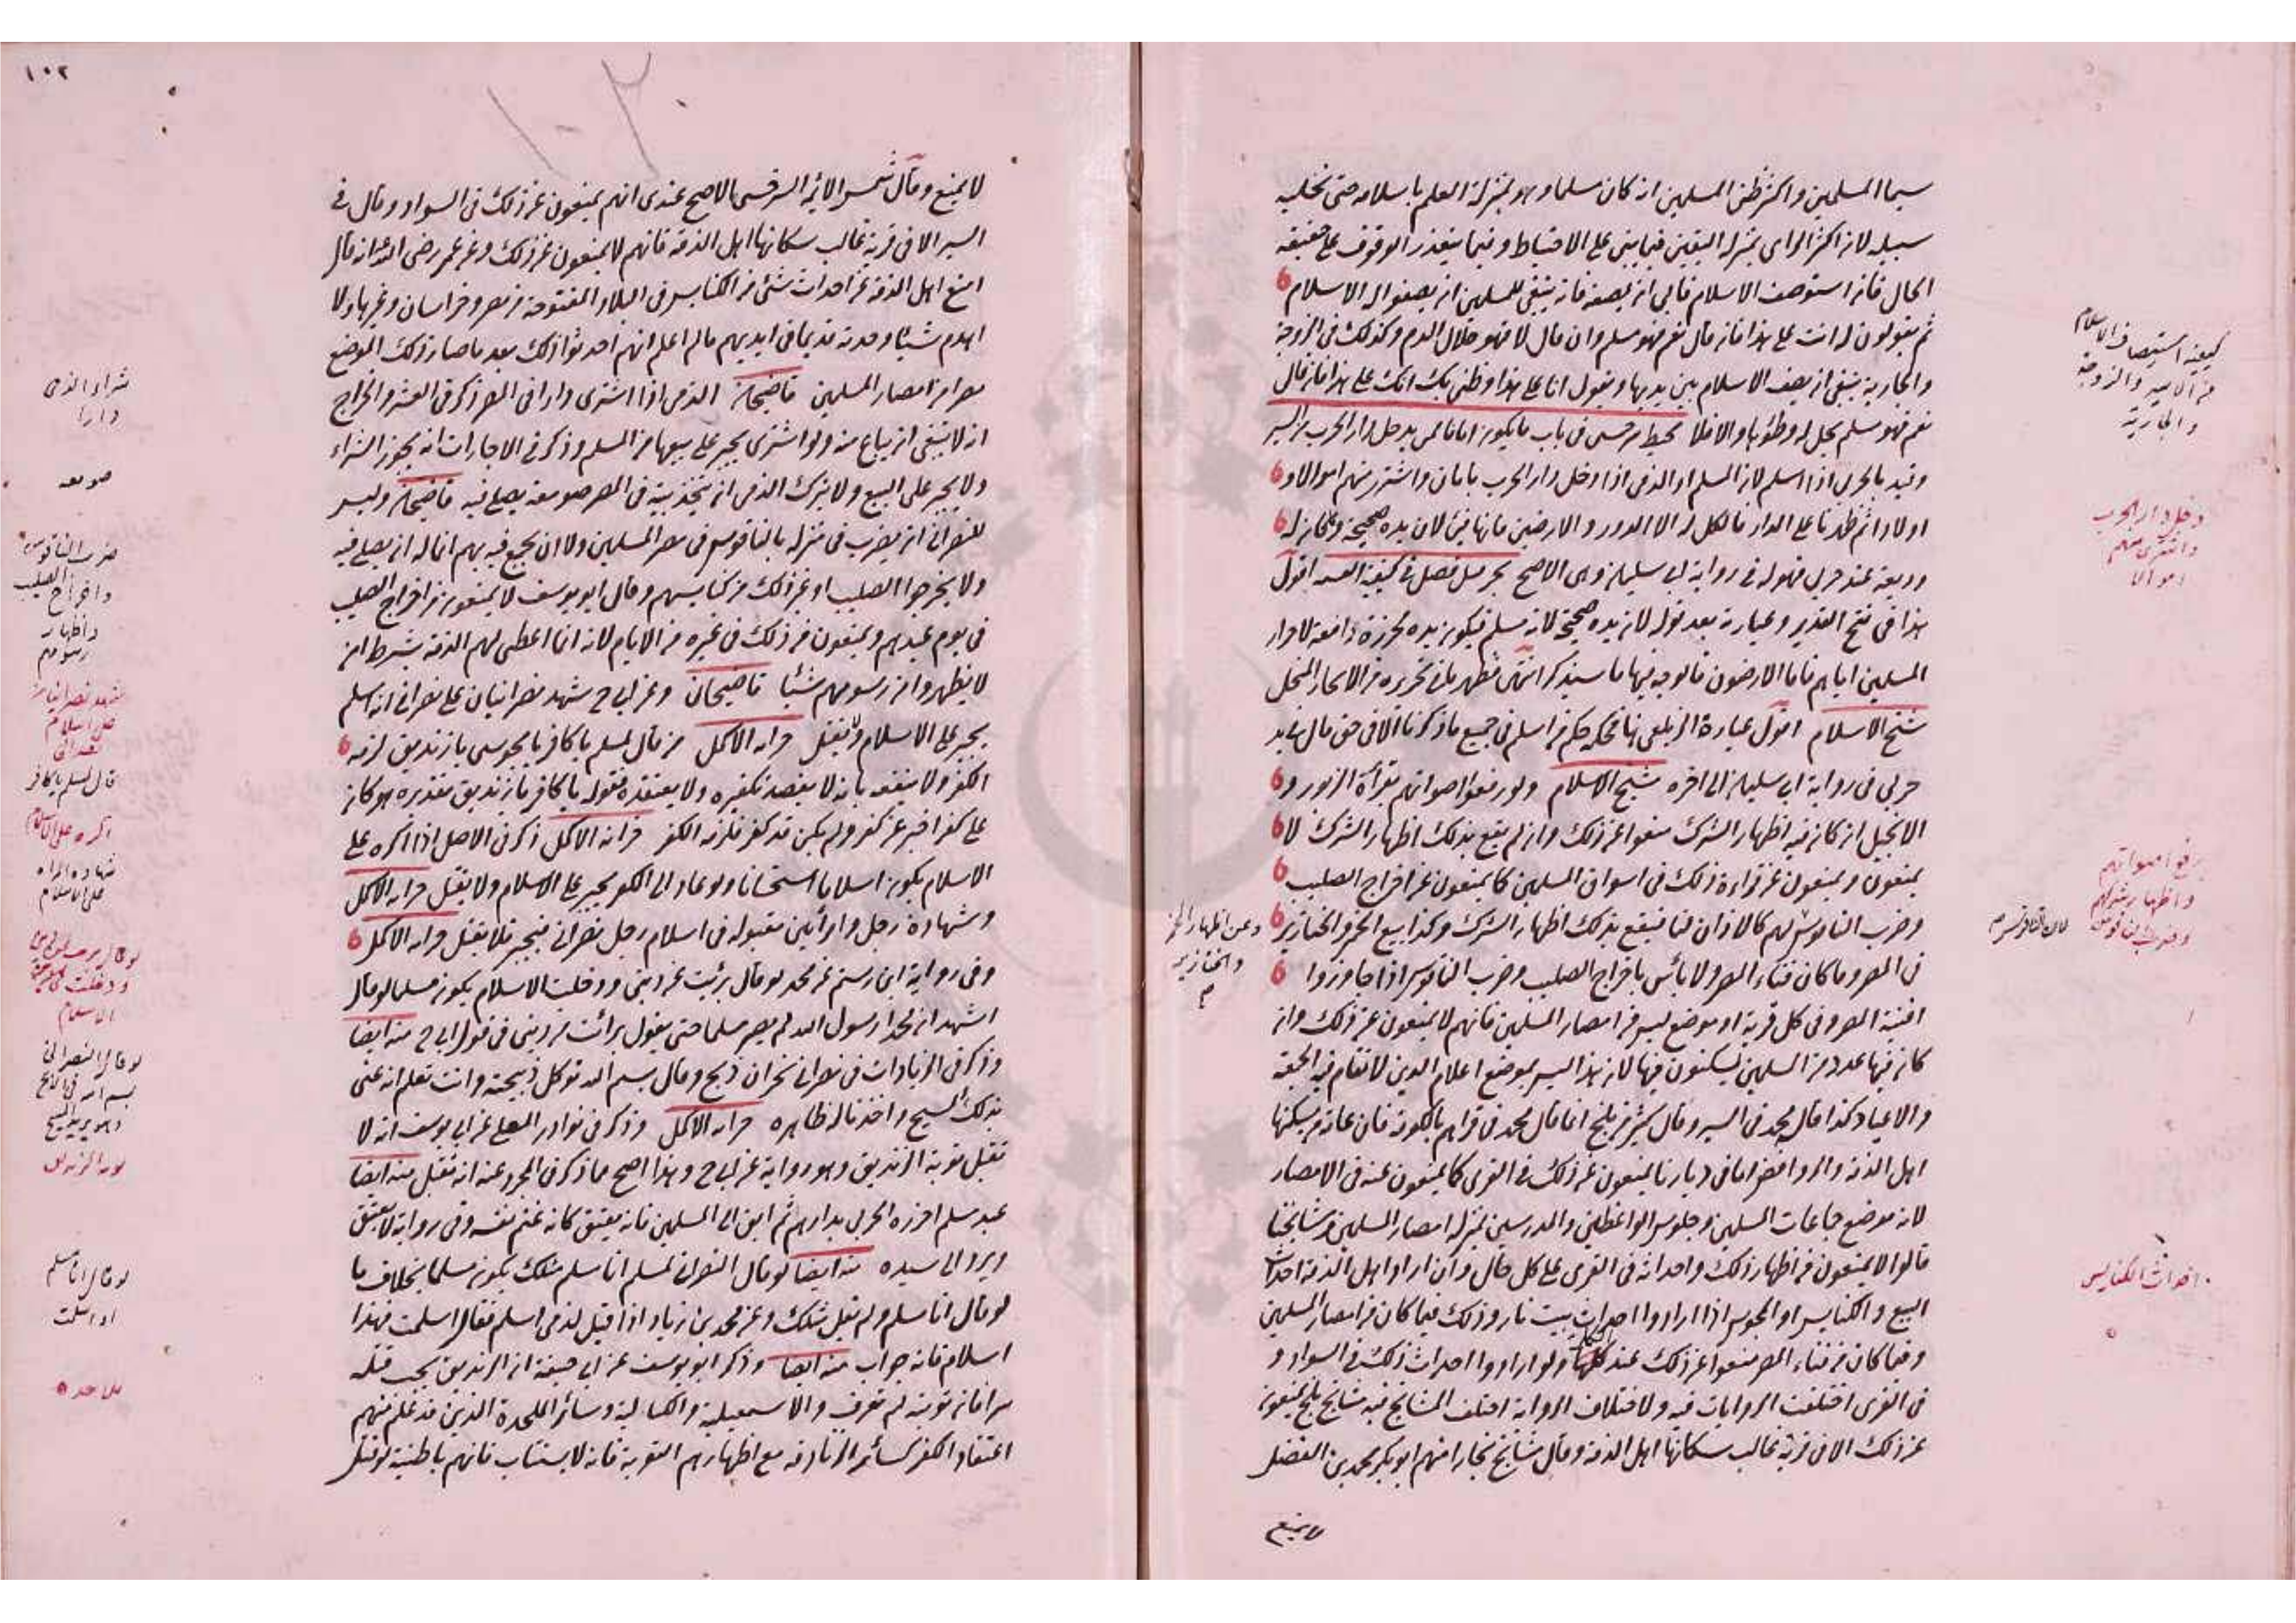 سيما المسلمين واكثر ظن المسلمين انه كان مسلما وهو بمنزلة العلم باسلامه حتى نخلى
سبيله لان اكثر الراى بمنزلة اليقين فيما يبنى على الاحتياط وفيما يتعذر الوقوف على حقيقة
الحال فان استوصف الاسلام فابى ان يصفه فانه ينبغي للمسلمين ان يصفوا له الاسلام
ثم يقولون له انت على هذا فان قال نعم فهو مسلم وان قال لا فهو حلال الدم وكذلك في الزوجة
والجارية ينبغي ان يصف الاسلام بين يديها ويقول انا على هذا وظني بك انك على هذا فان قال
نعم فهو مسلم يحل له وطؤها والا فلا محيط سرخسى في باب ما يكون امانا لمن يدخل دار الحرب من السير
وقيد بالحربي اذا اسلم لان المسلم او الذمى اذا دخل دار الحرب بامان واشترى منهم اموالا و
اولادا ثم ظهرنا على الدار فالكل له الا الدور والارضين فانها فئ لان يده صحيحة وما كان له
وديعة عند حربي فهو له في رواية ابى سليمان وهى الاصح بحر من فصل في كيفية القسمة اقول
هذا في فتح القدير وعبارته بعد قوله لان يده صحيحة لانه مسلم فيكون يده محرزة دافعة لاحراز
المسلمين اياهم فاما الارضون فالوجه فيها ما سيذكر انتهى فظهر ما في تحريره من الايجاز المخل
شيخ الاسلام اقول عبارة الزيلعى هنا فحكمه حكم من اسلم في جميع ما ذكرنا الا في حق مال في يد
حربى في رواية ابى سليمان الى اخره شيخ الاسلام ولو رفعوا اصواتهم بقراءة الزبور و
الانجيل ان كان فيه اظهار الشرك منعوا عن ذلك وان لم يقع بذلك اظهار الشرك لا
يمنعون ويمنعون عن قراءة ذلك في اسواق المسلمين كما يمنعون عن اخراج الصليب
وضرب الناقوس لهم كالاذان لنا فيقع بذلك اظهار الشرك وكذا بيع الخمر والخنازير
في المصر وما كان فناء المصر ولا بأس باخراج الصليب وضرب الناقوس اذا جاوزوا
افنية المصر وفى كل قرية او موضع ليس من امصار المسلمين فانهم لا يمنعون عن ذلك وان
كان فيها عدد من المسلمين يسكنون فيها لان هذا ليس بموضع اعلام الدين لا تقام فيه الجمعة
والاعياد كذا قال محمد في السير وقال كثير من بلخ انما قال محمد في قراهم بالكوفة فان عامة من يسكنها
اهل الذمة والروافض اما في ديارنا يمنعون عن ذلك في القرى كما يمنعون عنه في الامصار
لانه موضع جماعات المسلمين وجلوس الواعظين والمدرسين بمنزلة امصار المسلمين ومشايخنا
قالوا لا يمنعون من اظهار ذلك واحداثه في القرى على كل حال وان اراد اهل الذمة احداث
البيع والكنايس او المجوس اذا ارادوا احداث بيت نار وذلك فيما كان من امصار المسلمين
وفيما كان من فناء المصر منعوا عن ذلك عند ولو ارادوا احداث ذلك في السواد و
في القرى اختلفت الروايات فيه ولاختلاف الرواية اختلف المشايخ فيه مشايخ بلخ يمنعون
عن ذلك الا في قرية غالب سكانها اهل الذمة وقال مشايخ بخارا منهم ابو بكر محمد بن الفضل
لا يمنع
كيفية استيصاف الاسلام
من الاسير والزوجة
والجارية
دخل دار الحرب
واشترى منهم
اموالا
رفع اصواتهم
واظهار شركهم
وضرب ناقوس
لان الناقوس
وعن اظهار الخمر
والخنازير
احداث الكنايس
١٠٢
لا يمنع وقال شمس الائمة السرخسى الاصح عندى انهم يمنعون عن ذلك في السواد وقال في
السير الا في قرية غالب سكانها اهل الذمة فانهم لا يمنعون عن ذلك وعن عمر رضى الله انه قال
امنع اهل الذمة عن احداث شئ من الكنايس في البلاد المفتوحة من مصر وخراسان وغيرها ولا
اهدم شيئا وجدته قديما في ايديهم ما لم اعلم انهم احدثوا ذلك بعد ما صار ذلك الموضع
مصرا من امصار المسلمين قاضيخان الذمى اذا اشترى دارا في المصر ذكر في العشر والخراج
انه لا ينبغي ان يباع منه ولو اشترى يجبر على بيعها من المسلم وذكر في الاجارات انه يجوز الشراء
ولا يجبر على البيع ولا يترك الذمى ان يتخذ بيته في المصر صومعة يصلى فيه قاضيخان وليس
للنصرانى ان يضرب في منزله بالناقوس في مصر المسلمين ولا ان يجمع فيه بهم انما له ان يصلى فيه
ولا يخرجوا الصليب او غير ذلك من كنايسهم وقال ابو يوسف لا يمنعون من اخراج الصليب
في يوم عيدهم ويمنعون من ذلك في غيره من الايام لانه انما اعطى لهم الذمة بشرط ان
لا يظهروا من رسومهم شيئا قاضيخان وعن ابى ح شهد نصرانيان على نصرانى انه اسلم
يجبر على الاسلام ولا يقتل خزانة الاكمل من قال لمسلم يا كافر يا مجوسى يا زنديق لزمه
الكفر ولا ينفعه بانه لا يقصد تكفيره ولا يعتقده فقوله يا كافر يا زنديق تقديره هو كان
على كفر اخبر عن كفر ولم يكن قد كفر فلزمه الكفر خزانة الاكمل ذكر في الاصل اذا اكره على
الاسلام يكون اسلاما استحسانا ولو عاد الى الكفر يجبر على الاسلام ولا يقتل خزانة الاكمل
وشهادة رجل وامرأتين مقبولة في اسلام رجل نصرانى فيجبر فلا يقتل خزانة الاكمل
وفى رواية ابن رستم عن محمد لو قال برئت عن دينى ودخلت الاسلام يكون مسلما لو قال
اشهد ان محمدا رسول الله لم يصر مسلما حتى يقول برأت من دينى في قول ابى ح منه ايضا
وذكر في الزيادات في نصرانى نجران ذبح وقال بسم الله توكل ذبيحته وانت تعلم انه عنى
بذلك المسيح واخذنا له ظاهره خزانة الاكمل وذكر في نوادر المعلى عن ابى يوسف انه لا
تقبل توبة الزنديق وهو رواية عن ابى ح وهذا اصح مما ذكر في المجرد عنه انه تقبل منه ايضا
عبد مسلم احرزه الحربى بدارهم ثم ابق الى المسلمين فانه يعتق كانه غنم نفسه وفى رواية لا يعتق
ويرد الى سيده منه ايضا لو قال النصرانى لمسلم انا مسلم مثلك يكون مسلما بخلاف ما
لو قال انا مسلم ولم يقل مثلك وعن محمد بن زياد اذا قيل لذمى اسلم فقال اسلمت فهذا
اسلام فانه جواب منه ايضا وذكر ابو يوسف عن ابى حنيفة ان الزنديق يجب قتله
سرا فان توبته لم تعرف والاسمعيلية والكيالية وسائر الملحدة الذين قد علم منهم
اعتقاد الكفر كسائر الزنادقة مع اظهارهم التوبة فانه لا يستتاب فانهم باطنية لو قتل
شراء الذمى
دارا
صومعه
ضرب الناقوس
واخراج الصليب
واظهار
رسومهم
شهد نصرانيان
على اسلام
نصرانى
قال لمسلم يا كافر
اكره على الاسلام
شهادة المراه
على الاسلام
ودخلت
الاسلام
لو قال النصرانى
بسم الله في الذبح
وهو يريد المسيح
توبة الزنديق
لو قال انا مسلم
او اسلمت
ملاحده